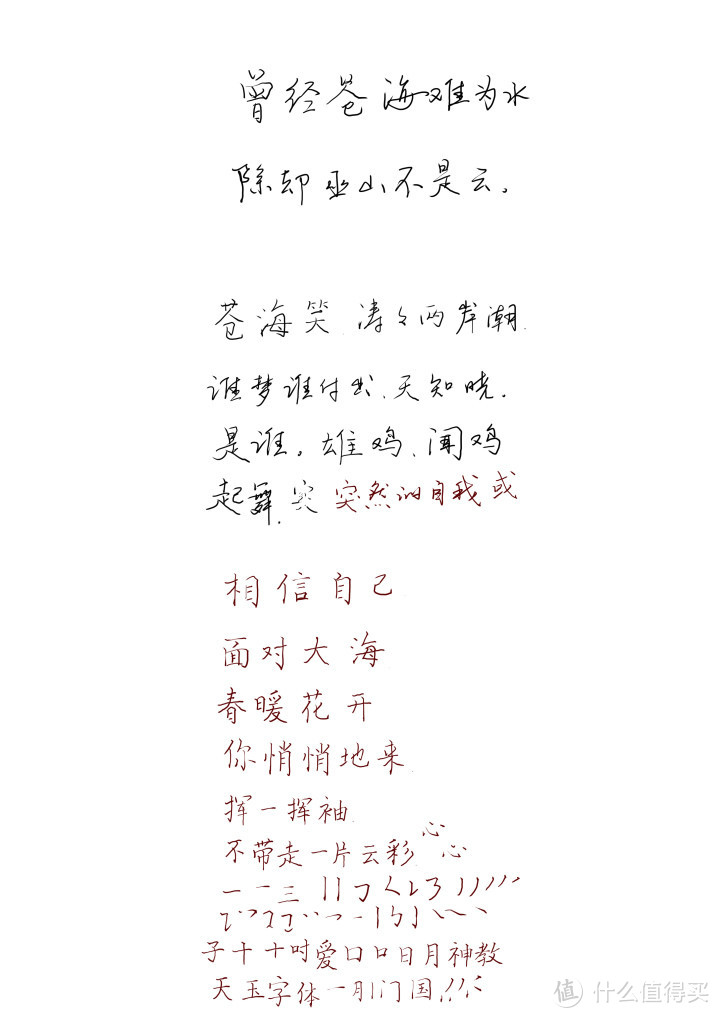 曾经苍海难为水
除却巫山不是云。
苍海笑 涛々两岸潮
谁梦谁付出、天知晓.
是谁。雄鸡、闻鸡
起舞. 突 突然 自我或
相信自己
面对大海
春暖花开
你悄悄地来
挥一挥袖
不带走一片云彩 心 心
一 一 三
子十十吋爱口口日月神教
天玉字体一月门国
值 什么值得买